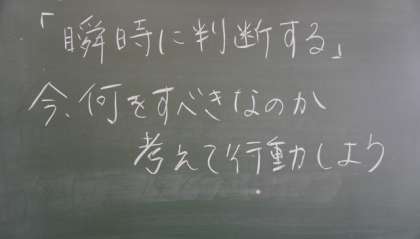 「瞬時に判断する」
今、何をすべきなのか
考えて行動しよう